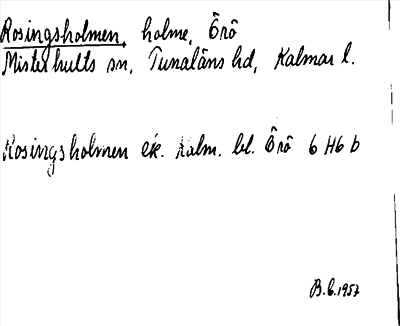 Rosingsholmen, holme, Örö
Misterhults sn, Tunaläns hd, Kalmar l.
Rosingsholmen ek. Kalm. bl. Örö 6 H6 b
B.C. 1957